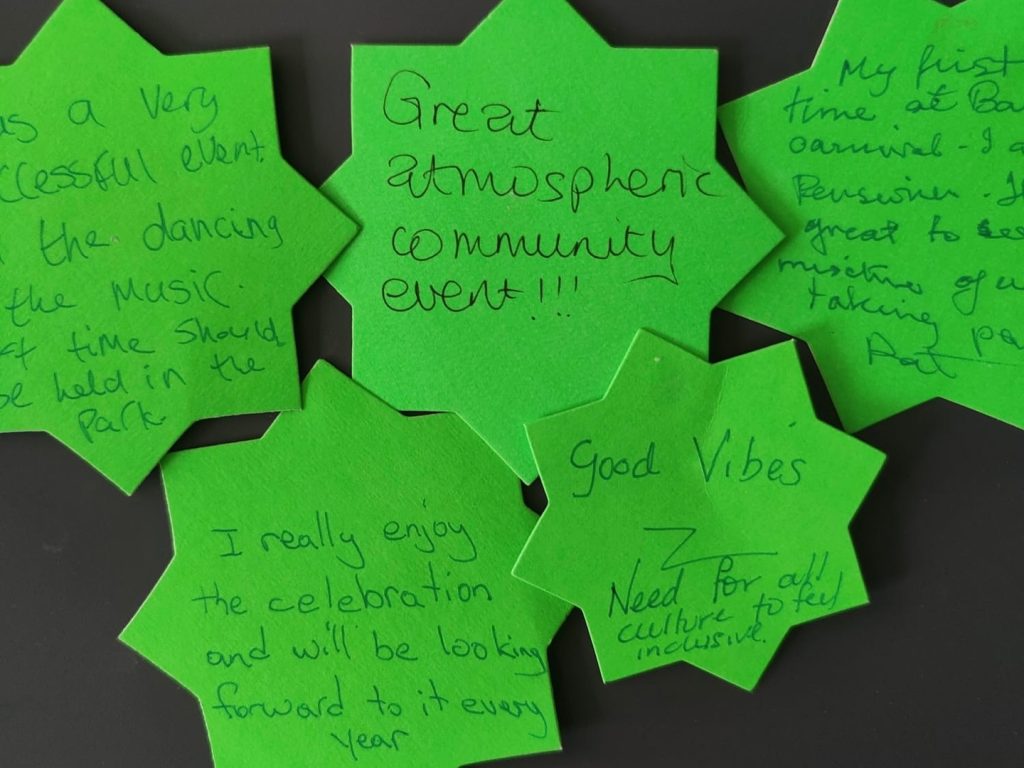 as a very
ccessful event.
the dancing
the music.
time should
be held in the
park.
Great
atmospheric
community
event!!!
My first
time at Ba
carnival - I a
Pensioner - I
great to see
mixture of
taking pa
Pat
I really enjoy
the celebration
and will be looking
forward to it every
year
Good Vibes
Need for all
culture to feel
inclusive.